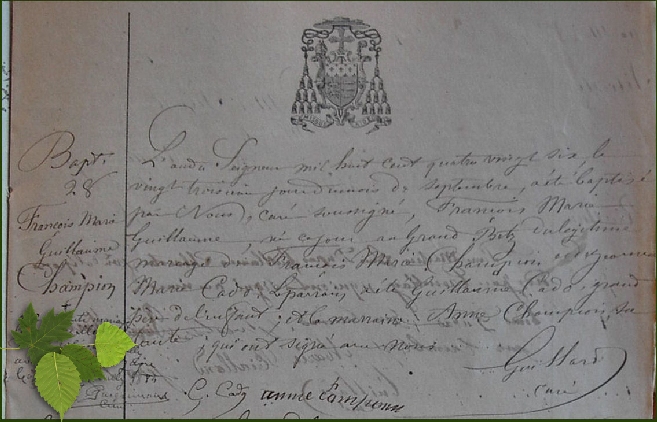 Bapt.
28
François Marie
Guillaume
Champion
+
L'an du Seigneur mil huit cent quatre vingt six, le
vingt troisième jour du mois de septembre, a été baptisé
par Nous, curé soussigné, François Marie
Guillaume, né ce jour au Grand Betz du légitime
mariage François Marie Champion et de
Marie Cado. Le parrain a été Guillaume Cado, grand
père de l'enfant, et la marraine Anne Champion, sa
tante, qui ont signé avec Nous.
G. Cado anne Campion
curé